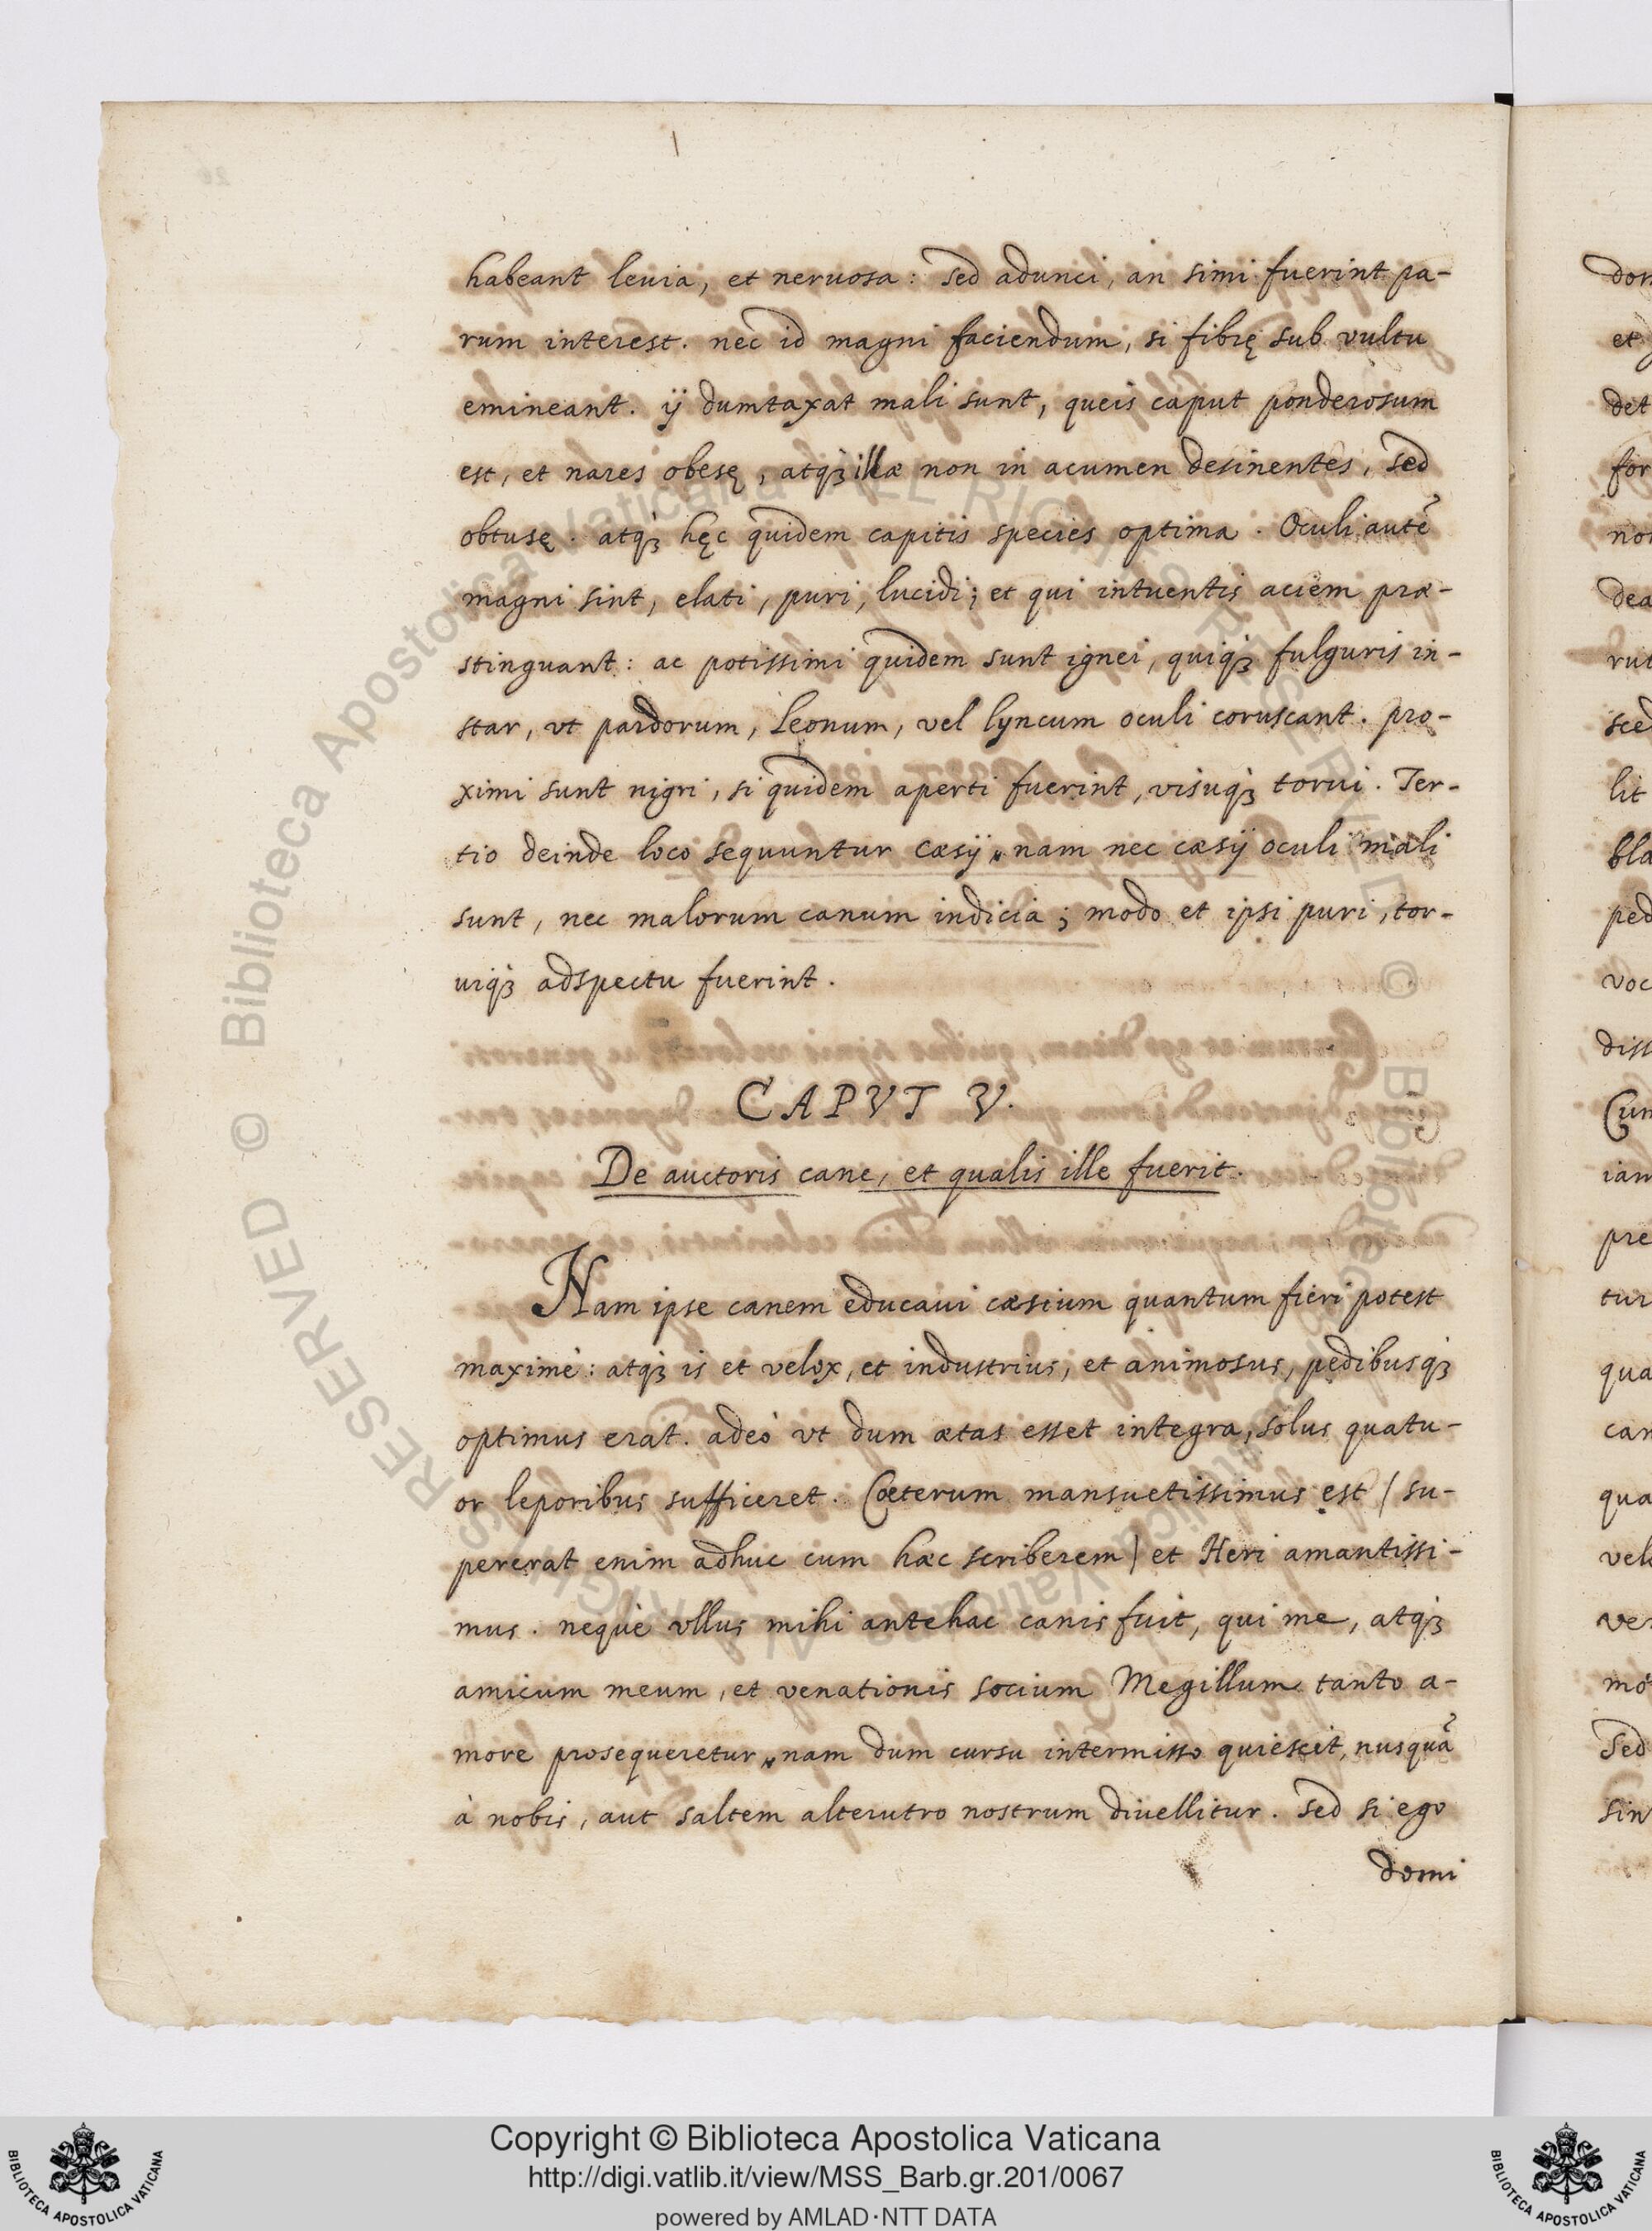 habeant leuia, et neruosa: sed adunci, an simi fuerint pa-
rum interest. nec id magni faciendum, si fibrę sub vultu
emineant. ij dumtaxat mali sunt, queis caput ponderosum
est, et nares obesę, atqꝫ illæ non in acumen desinentes, sed
obtusę. atqꝫ hęc quidem capitis species optima. Oculi autẽ
magni sint, elati, puri, lucidi; et qui intuentis aciem præ-
stinguant: ac potissimi quidem sunt ignei, quiqꝫ fulguris in-
star, vt pardorum, Leonum, vel lyncum oculi coruscant. pro-
ximi sunt nigri, si quidem aperti fuerint, visuqꝫ torui. Ter-
tio deinde loco sequuntur cæsij, nam nec cæsij oculi mali
sunt, nec malorum canum indicia; modo et ipsi puri, tor-
uiqꝫ adspectu fuerint.
CAPVT V.
De auctoris cane, et qualis ille fuerit.
Nam ipse canem educaui cæsium quantum fieri potest
maximè: atqꝫ is et velox, et industrius, et animosus, pedibusqꝫ
optimus erat. adeò vt dum ætas esset integra, solus quatu-
or leporibus sufficeret. Cæterum mansuetissimus est (su-
pererat enim adhuc cum hæc scriberem) et Heri amantissi-
mus. neque vllus mihi antehac canis fuit, qui me, atqꝫ
amicum meum, et venationis socium Megillum tanto a-
more prosequeretur, nam dum cursu intermisso quiescit, nusquã
à nobis, aut saltem alterutro nostrum diuellitur. sed si ego
domi
et
det
for
dea
lit
ped
voc
diss
iam
pre
tur
qua
can
qua
vel
sed
sin
© Biblioteca Apostolica Vaticana ALL RIGHTS RESERVED
© Biblioteca Apostolica Vaticana ALL RIGHTS RESERVED
Copyright © Biblioteca Apostolica Vaticana
http://digi.vatlib.it/view/MSS_Barb.gr.201/0067
powered by AMLAD·NTT DATA
BIBLIOTECA APOSTOLICA VATICANA
BIBLIOTECA APOSTOLICA VATICANA